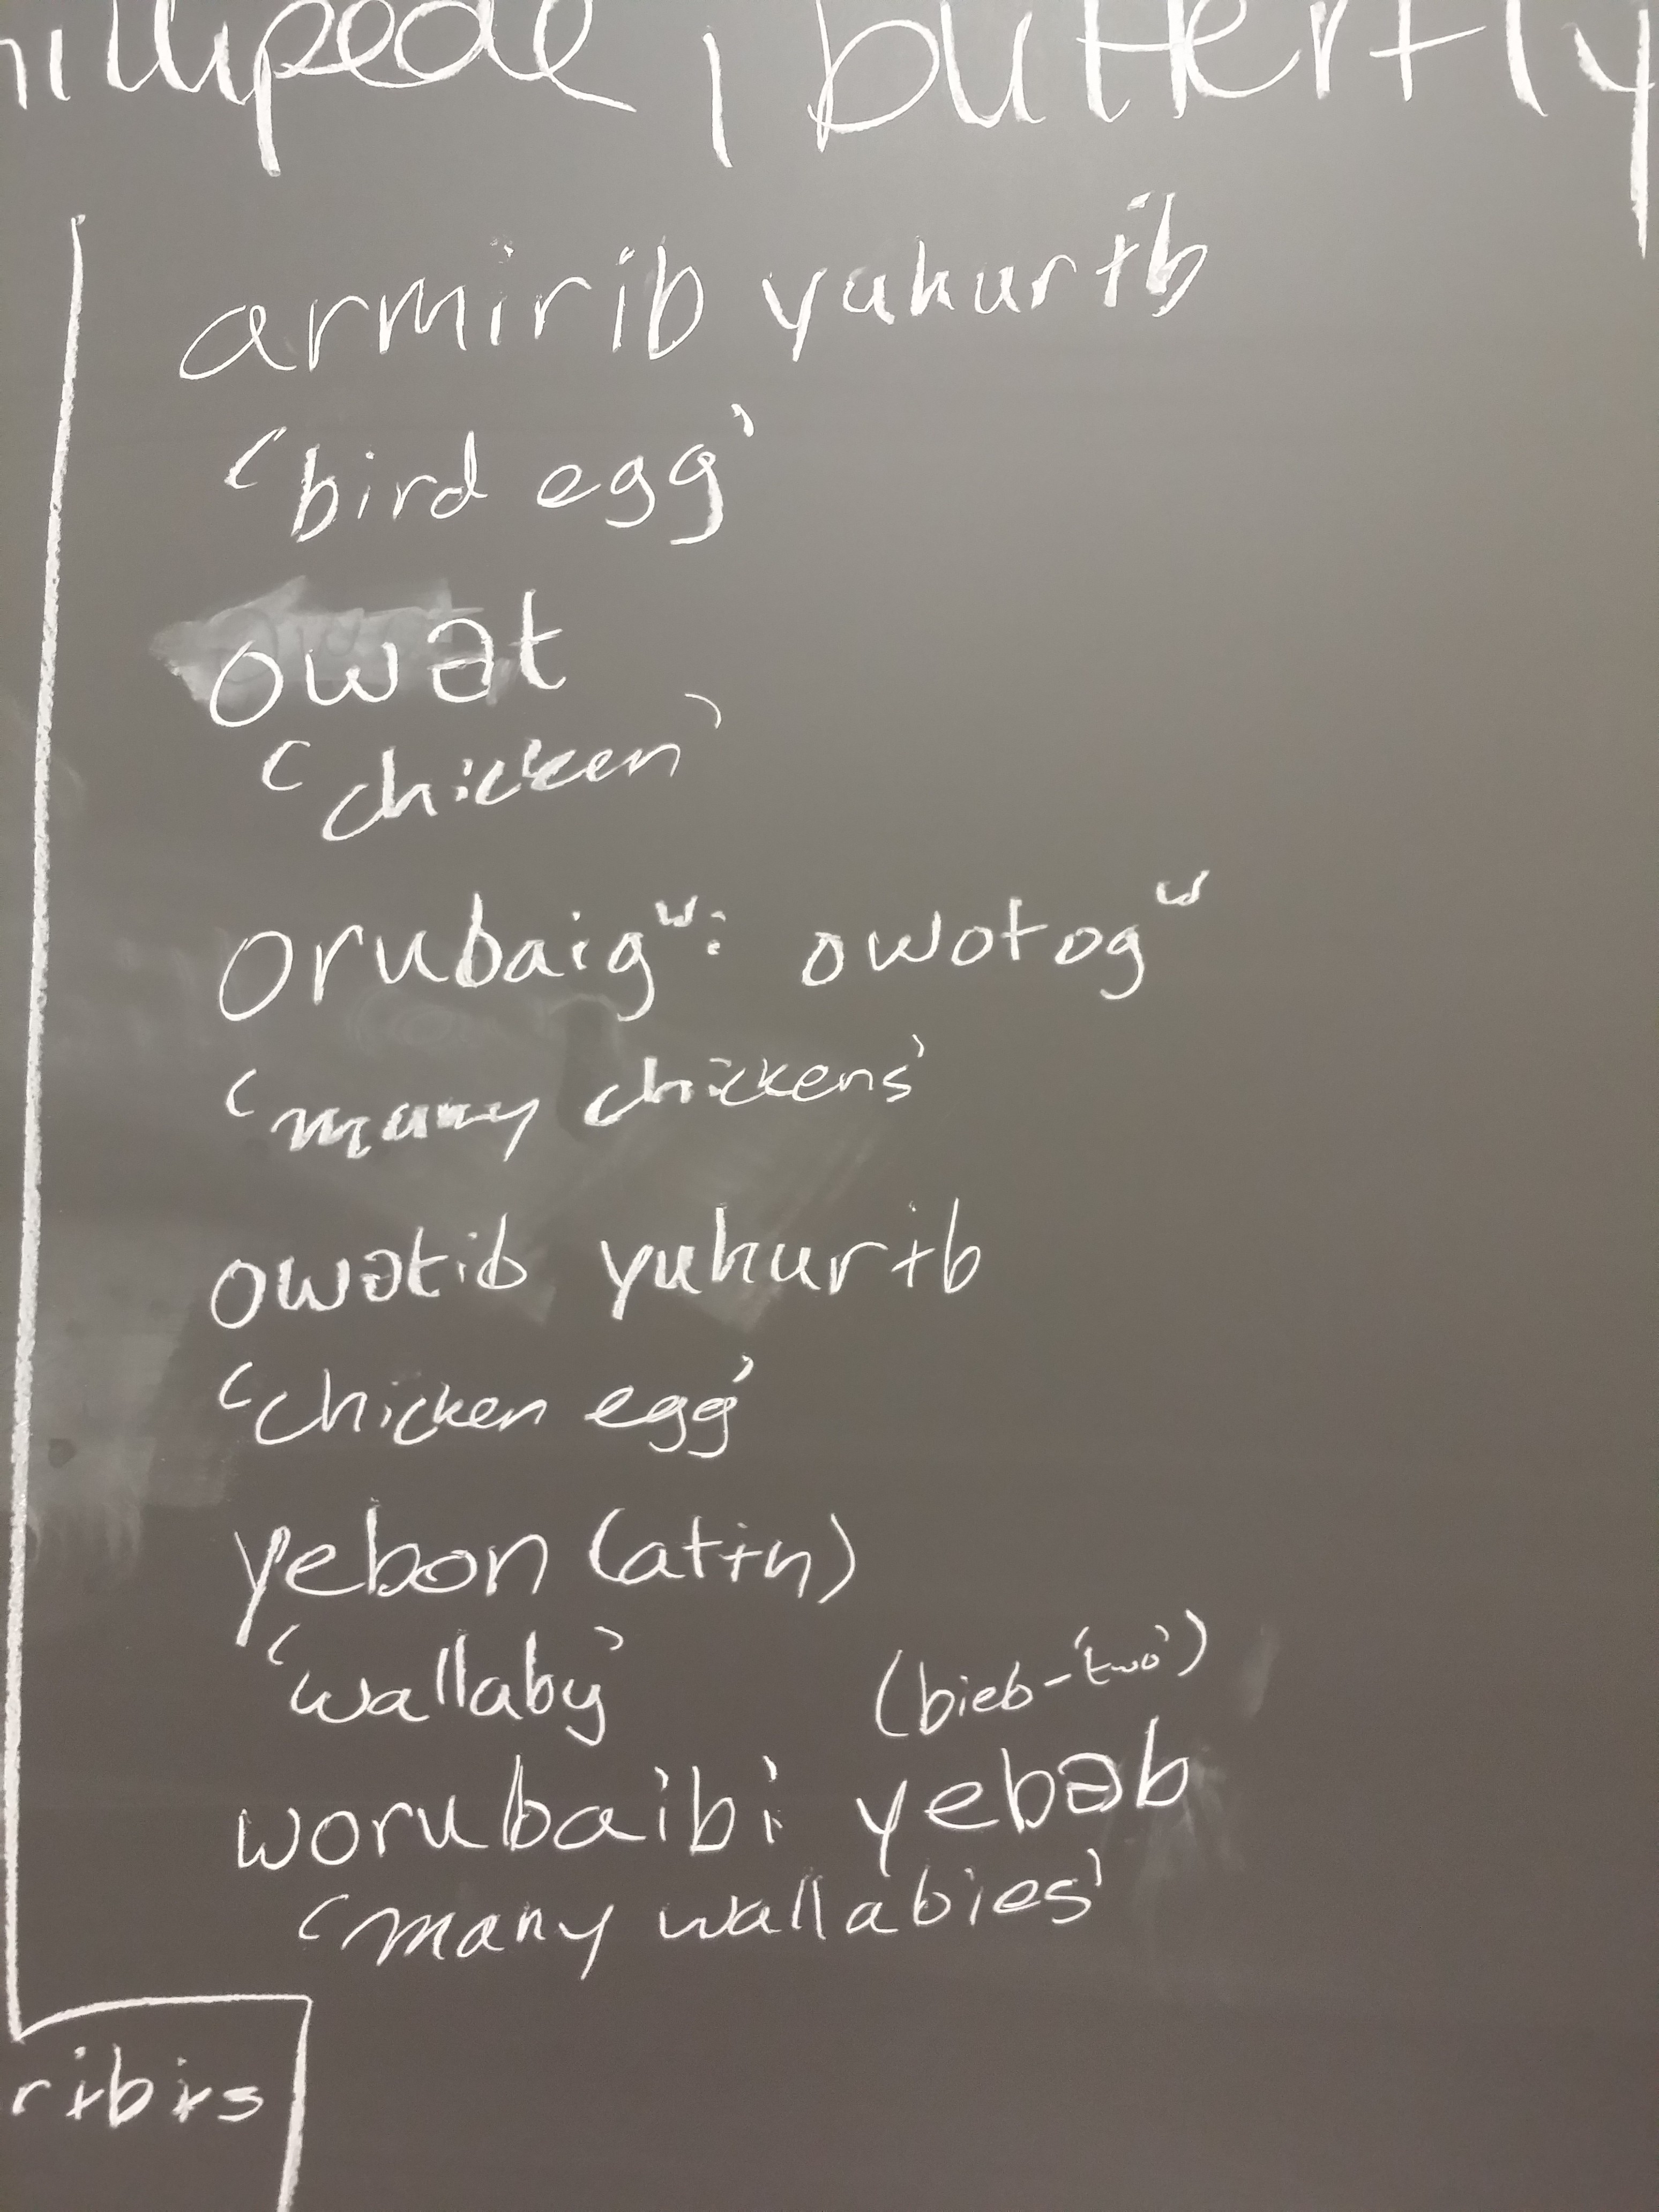 millipede, butterfly
armirib yuhurɨb
‘bird egg’
owət
‘chicken’
orubaigʷ: owotogʷ
‘many chickens’
owətib yuhurɨb
‘chicken egg’
yebon (atɨn)
‘wallaby’
(bieb-‘two’)
worubaibi yebəb
‘many wallabies’
rɨbɨs